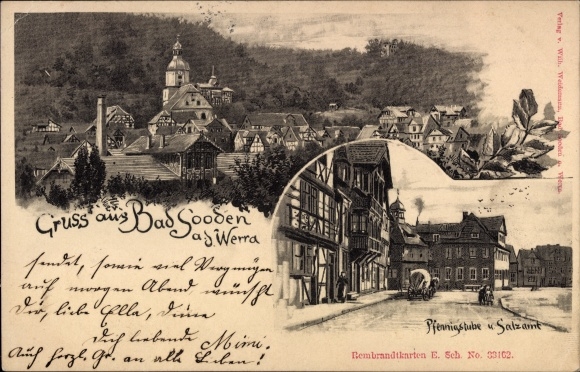 Gruss aus Bad Sooden
a/d Werra
sendet, sowie viel Vergnügen
auf morgen Abend wünscht
Dir, liebe Ella, Deine
Dich liebende Mimi.
Auch herzl. Gr. an alle Lieben!
Pfennigstube u. Salzamt
Rembrandtkarten E. Sch. No. 33162.
Verlag v. Wilh.